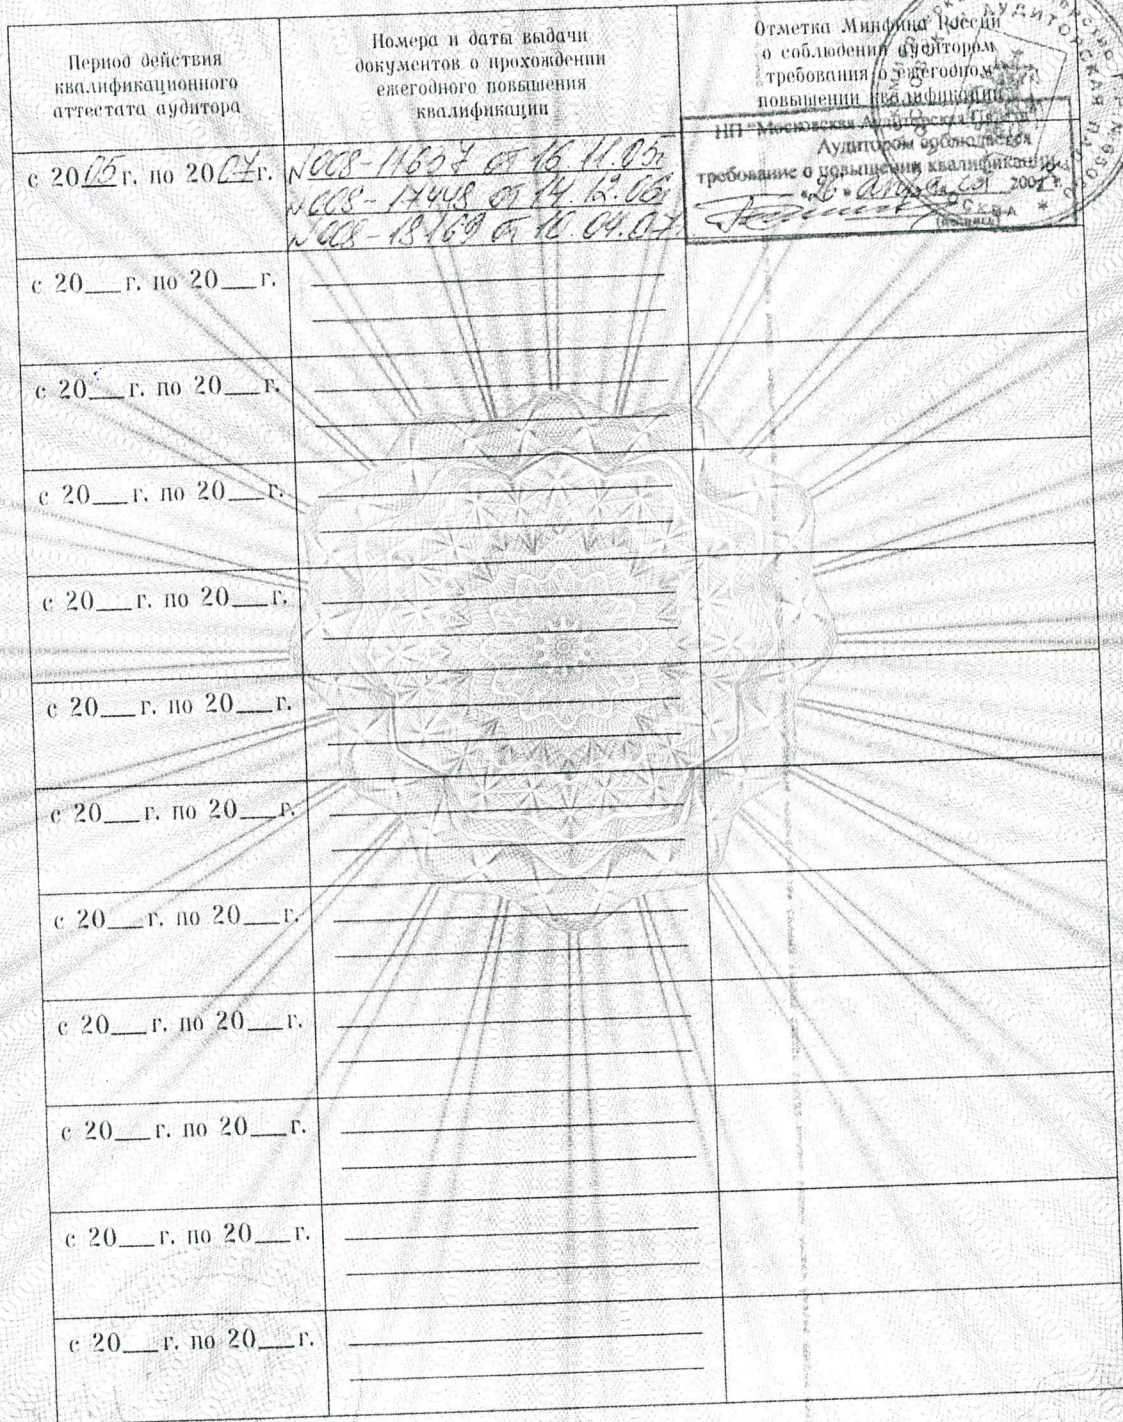 Период действия
квалификационного
аттестата аудитора
Номера и даты выдачи
документов о прохождении
ежегодного повышения
квалификации
Отметка Минфина России
о соблюдении аудитором
требования о ежегодном
повышении квалификации
с 2005 г. по 2007 г.
N 008-11637 от 16.11.05г
N 008-17448 от 14.12.06г
N 008-18169 от 10.04.07г.
НП "Московская Аудиторская Палата"
Аудитором соблюдается
требование о повышении квалификации
"26" апреля 2007 г.
(подпись)
АУДИТОРСКАЯ ПАЛАТА
МОСКВА
с 20___г. по 20___г.
с 20___г. по 20___г.
с 20___г. по 20___г.
с 20___г. по 20___г.
с 20___г. по 20___г.
с 20___г. по 20___г.
с 20___г. по 20___г.
с 20___г. по 20___г.
с 20___г. по 20___г.
с 20___г. по 20___г.
с 20___г. по 20___г.